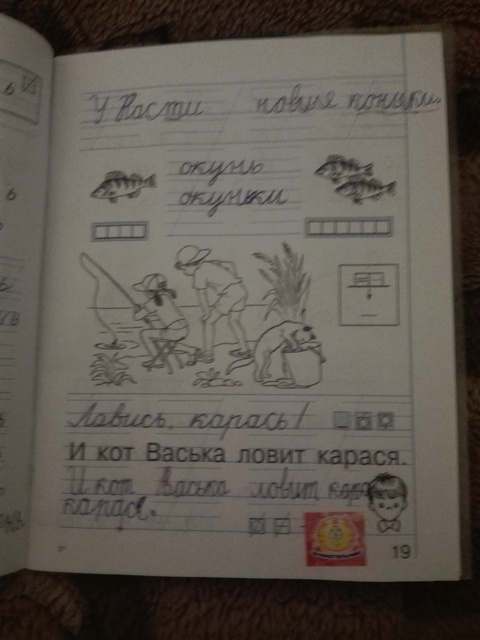 У Насти новые коньки.
окунь
окуньки
Ловись, карась!
И кот Васька ловит карася.
И кот Васька ловит кара
карася.
19